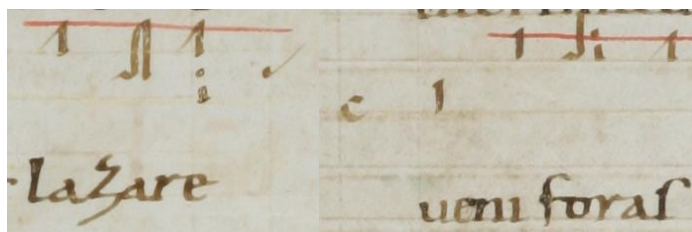 lazare
c
ueni foras